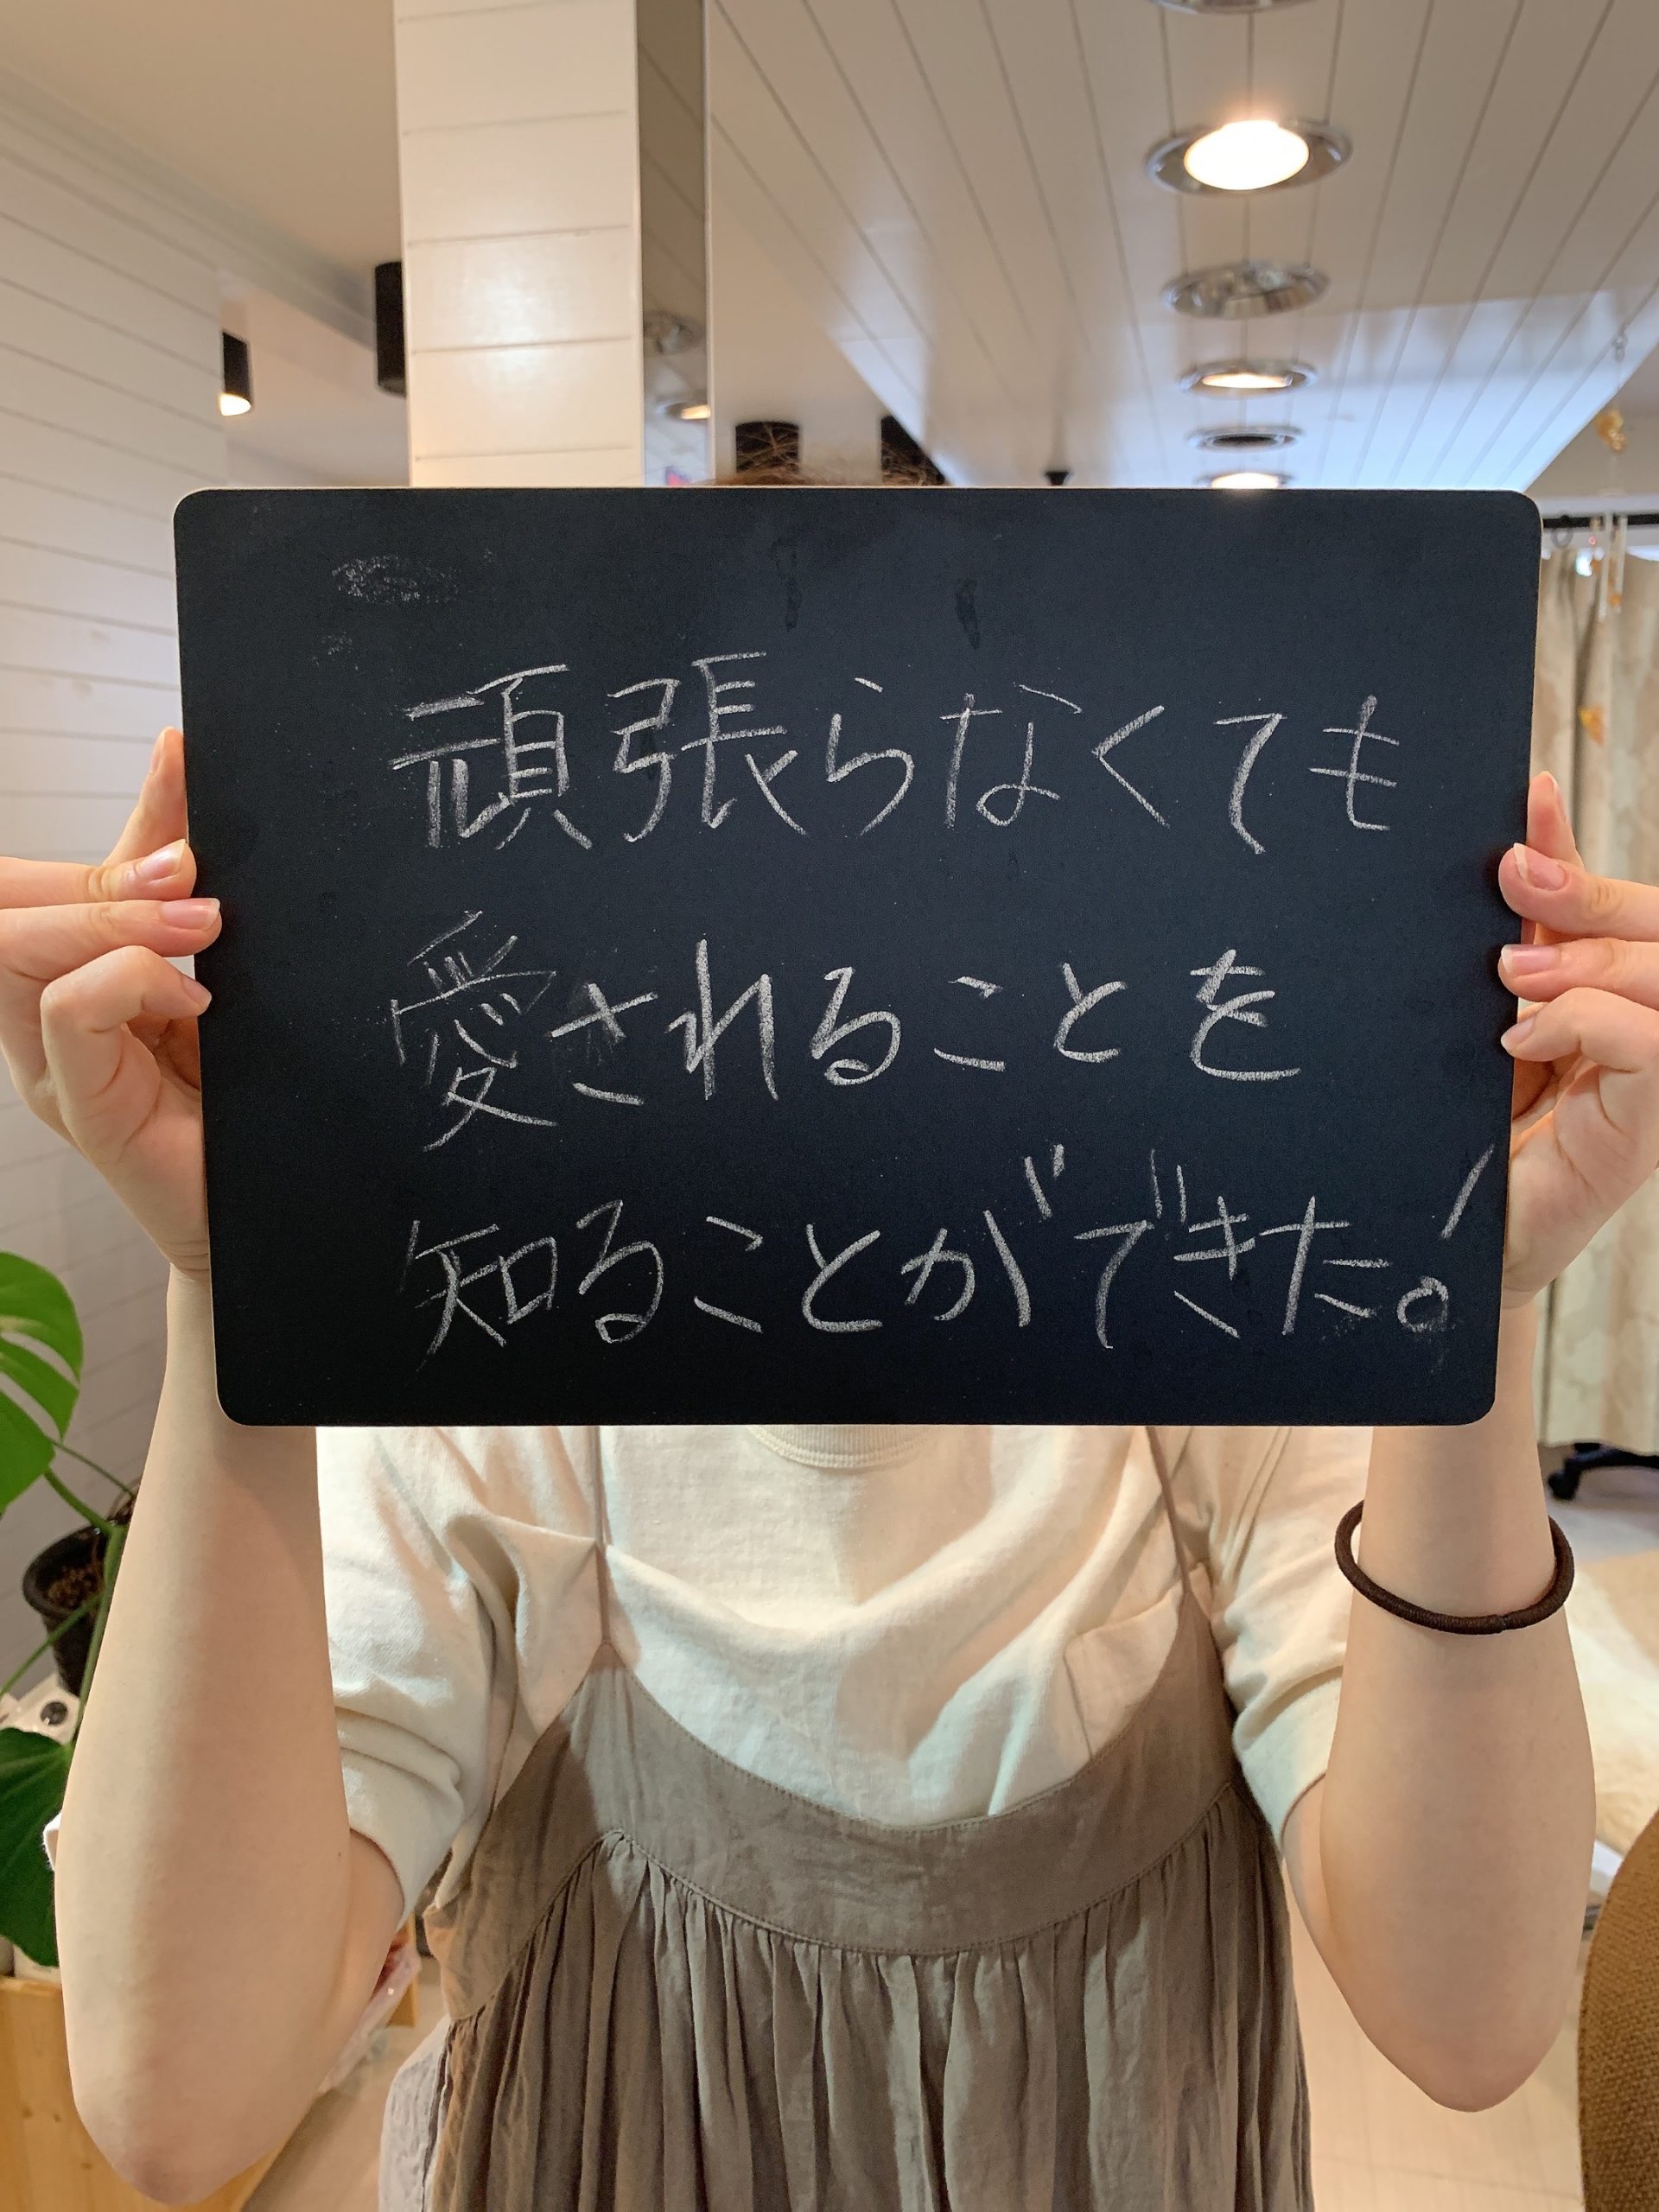 頑張らなくても
愛されることを
知ることができた!